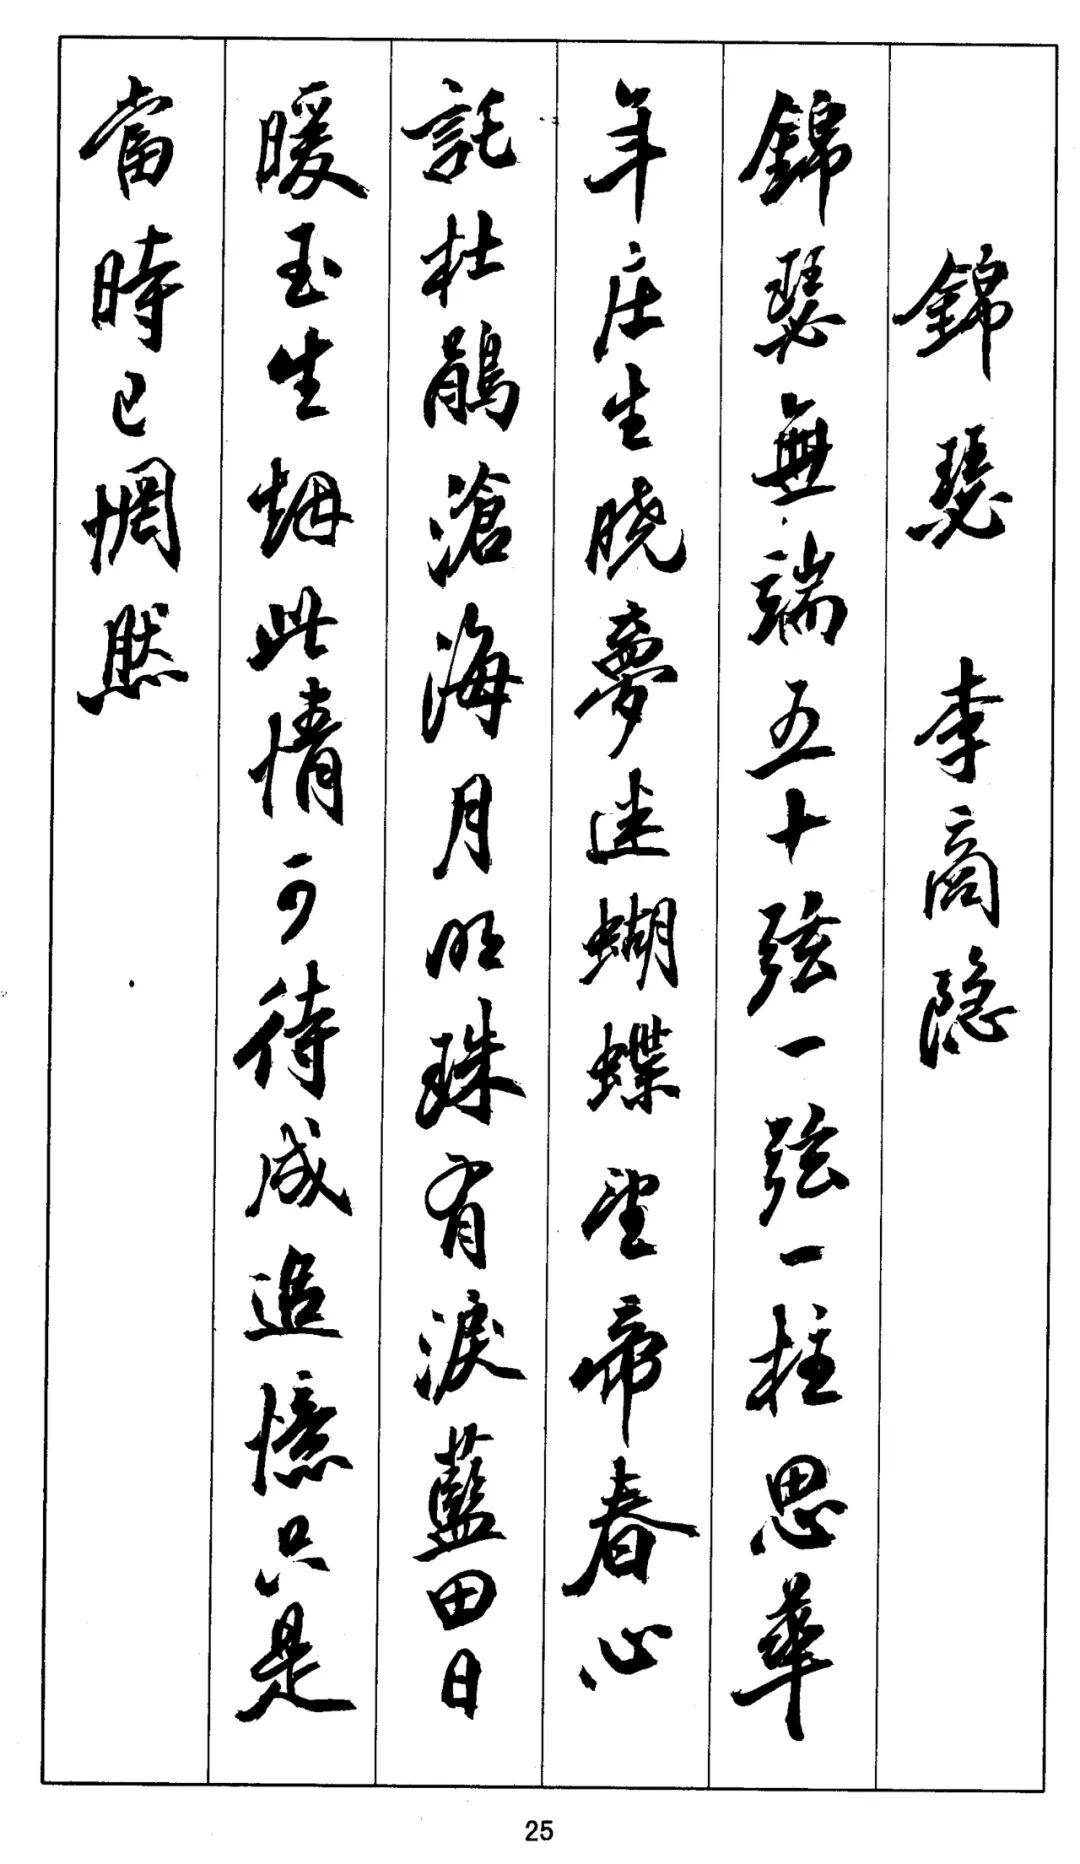 錦瑟 李商隐
錦瑟無端五十弦一弦一柱思華
年庄生晓夢迷蝴蝶望帝春心
託杜鵑滄海月明珠有淚藍田日
暖玉生烟此情可待成追憶只是
當時已惘然
25